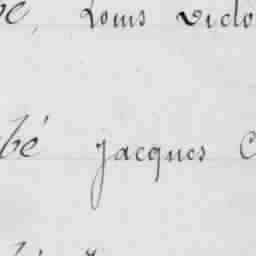 Louis Victo
bé Jacques C